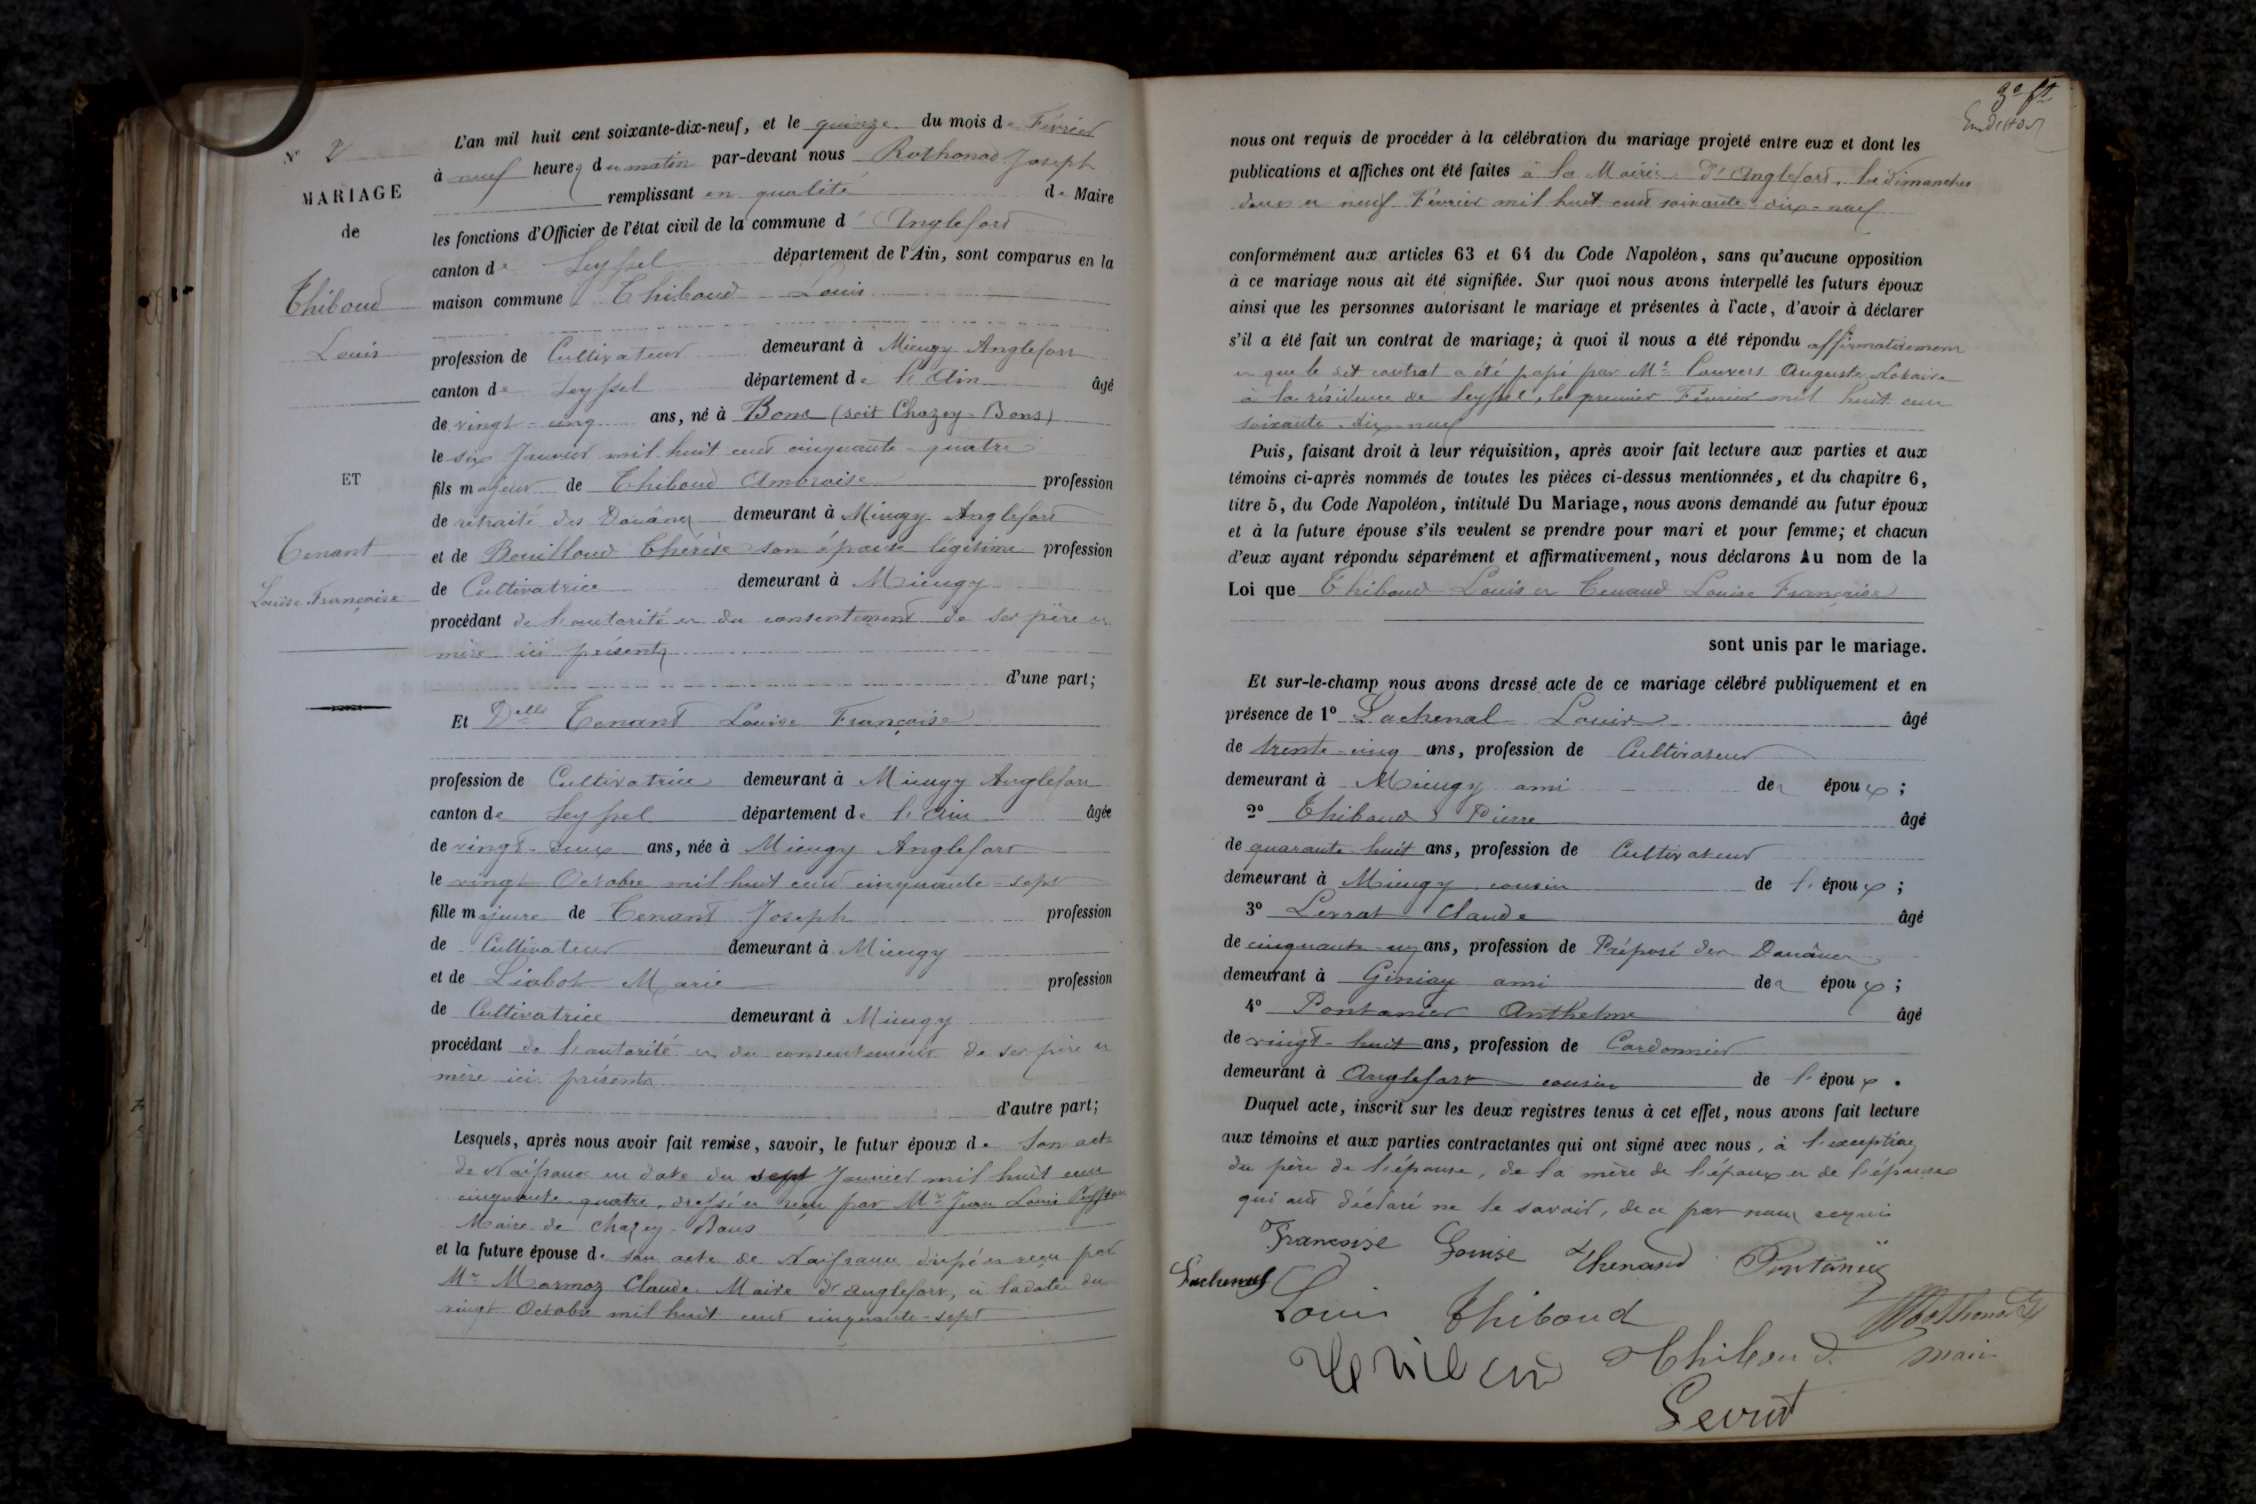 N° 2
MARIAGE
de
Thiboud
Louis
ET
Tenant
Louise Françoise
L'an mil huit cent soixante-dix-neuf, et le quinze du mois de Février
à neuf heures du matin par-devant nous Rothonod Joseph
remplissant en qualité de Maire
les fonctions d'Officier de l'état civil de la commune d'Anglefort
canton de Seyssel département de l'Ain, sont comparus en la
maison commune Thiboud Louis
profession de Cultivateur demeurant à Mieugy Anglefort
canton de Seyssel département de l'Ain âgé
de vingt-cinq ans, né à Bons (soit Chazey-Bons)
le six Janvier mil huit cent cinquante-quatre
fils majeur de Thiboud Ambroise profession
de retraité des Douanes demeurant à Mieugy Anglefort
et de Bouilloud Thérèse son épouse légitime profession
de Cultivatrice demeurant à Mieugy
procédant de l'autorité et du consentement de ses père et
mère ici présents
d'une part;
Et Delle Tenant Louise Françoise
profession de Cultivatrice demeurant à Mieugy Anglefort
canton de Seyssel département de l'Ain âgée
de vingt-deux ans, née à Mieugy Anglefort
le vingt Octobre mil huit cent cinquante-sept
fille majeure de Tenant Joseph profession
de Cultivateur demeurant à Mieugy
et de Liabot Marie profession
de Cultivatrice demeurant à Mieugy
procédant de l'autorité et du consentement de ses père et
mère ici présents
d'autre part;
Lesquels, après nous avoir fait remise, savoir, le futur époux de son acte
de Naissance en date du sept Janvier mil huit cent
cinquante-quatre, dressé et reçu par Mr Jean Louis
Maire de Chazey-Bons
et la future épouse de son acte de Naissance dressé et reçu par
Mr Marmoz Claude Maire d'Anglefort, à la date du
vingt Octobre mil huit cent cinquante-sept
3e ft
nous ont requis de procéder à la célébration du mariage projeté entre eux et dont les
publications et affiches ont été faites à la Mairie d'Anglefort, les dimanches
deux et neuf Février mil huit cent soixante-dix-neuf
conformément aux articles 63 et 64 du Code Napoléon, sans qu'aucune opposition
à ce mariage nous ait été signifiée. Sur quoi nous avons interpellé les futurs époux
ainsi que les personnes autorisant le mariage et présentes à l'acte, d'avoir à déclarer
s'il a été fait un contrat de mariage; à quoi il nous a été répondu affirmativement
et que le dit contrat a été passé par Me Auguste Notaire
à la résidence de Seyssel, le premier Février mil huit cent
soixante-dix-neuf
Puis, faisant droit à leur réquisition, après avoir fait lecture aux parties et aux
témoins ci-après nommés de toutes les pièces ci-dessus mentionnées, et du chapitre 6,
titre 5, du Code Napoléon, intitulé Du Mariage, nous avons demandé au futur époux
et à la future épouse s'ils veulent se prendre pour mari et pour femme; et chacun
d'eux ayant répondu séparément et affirmativement, nous déclarons Au nom de la
Loi que Thiboud Louis et Tenand Louise Françoise
sont unis par le mariage.
Et sur-le-champ nous avons dressé acte de ce mariage célébré publiquement et en
présence de 1° Lachenal Louis âgé
de trente-cinq ans, profession de Cultivateur
demeurant à Mieugy ami des époux;
2° Thiboud Pierre âgé
de quarante-huit ans, profession de Cultivateur
demeurant à Mieugy cousin de l'époux;
3° Levrat Claude âgé
de cinquante-un ans, profession de Préposé des Douanes
demeurant à Ginioy ami des époux;
4° Pontanier Anthelme âgé
de vingt-huit ans, profession de Cordonnier
demeurant à Anglefort cousin de l'époux.
Duquel acte, inscrit sur les deux registres tenus à cet effet, nous avons fait lecture
aux témoins et aux parties contractantes qui ont signé avec nous, à l'exception
du père de l'épouse, de la mère de l'époux et de l'épouse
qui ont déclaré ne le savoir, de ce par nous requis
Francoise Louise Thenand Pontanier
Lachenal
Louis Thiboud
Rothonod
Thiboud maire
Levrat